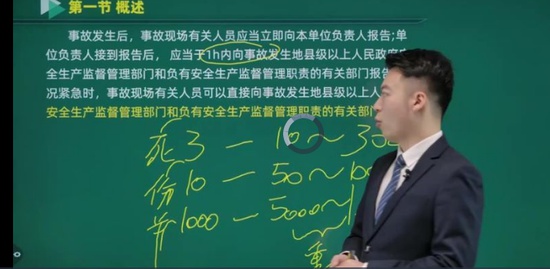 第一节 概述
事故发生后，事故现场有关人员应当立即向本单位负责人报告;单
位负责人接到报告后， 应当于1h内向事故发生地县级以上人民政府
全生产监督管理部门和负有安全生产监督管理职责的有关部门报告
况紧急时，事故现场有关人员可以直接向事故发生地县级以上人
安全生产监督管理部门和负有安全生产监督管理职责的有关部
死 3 — 10 ～ 30
伤 10 — 50～10
1000 — 5000～1
重